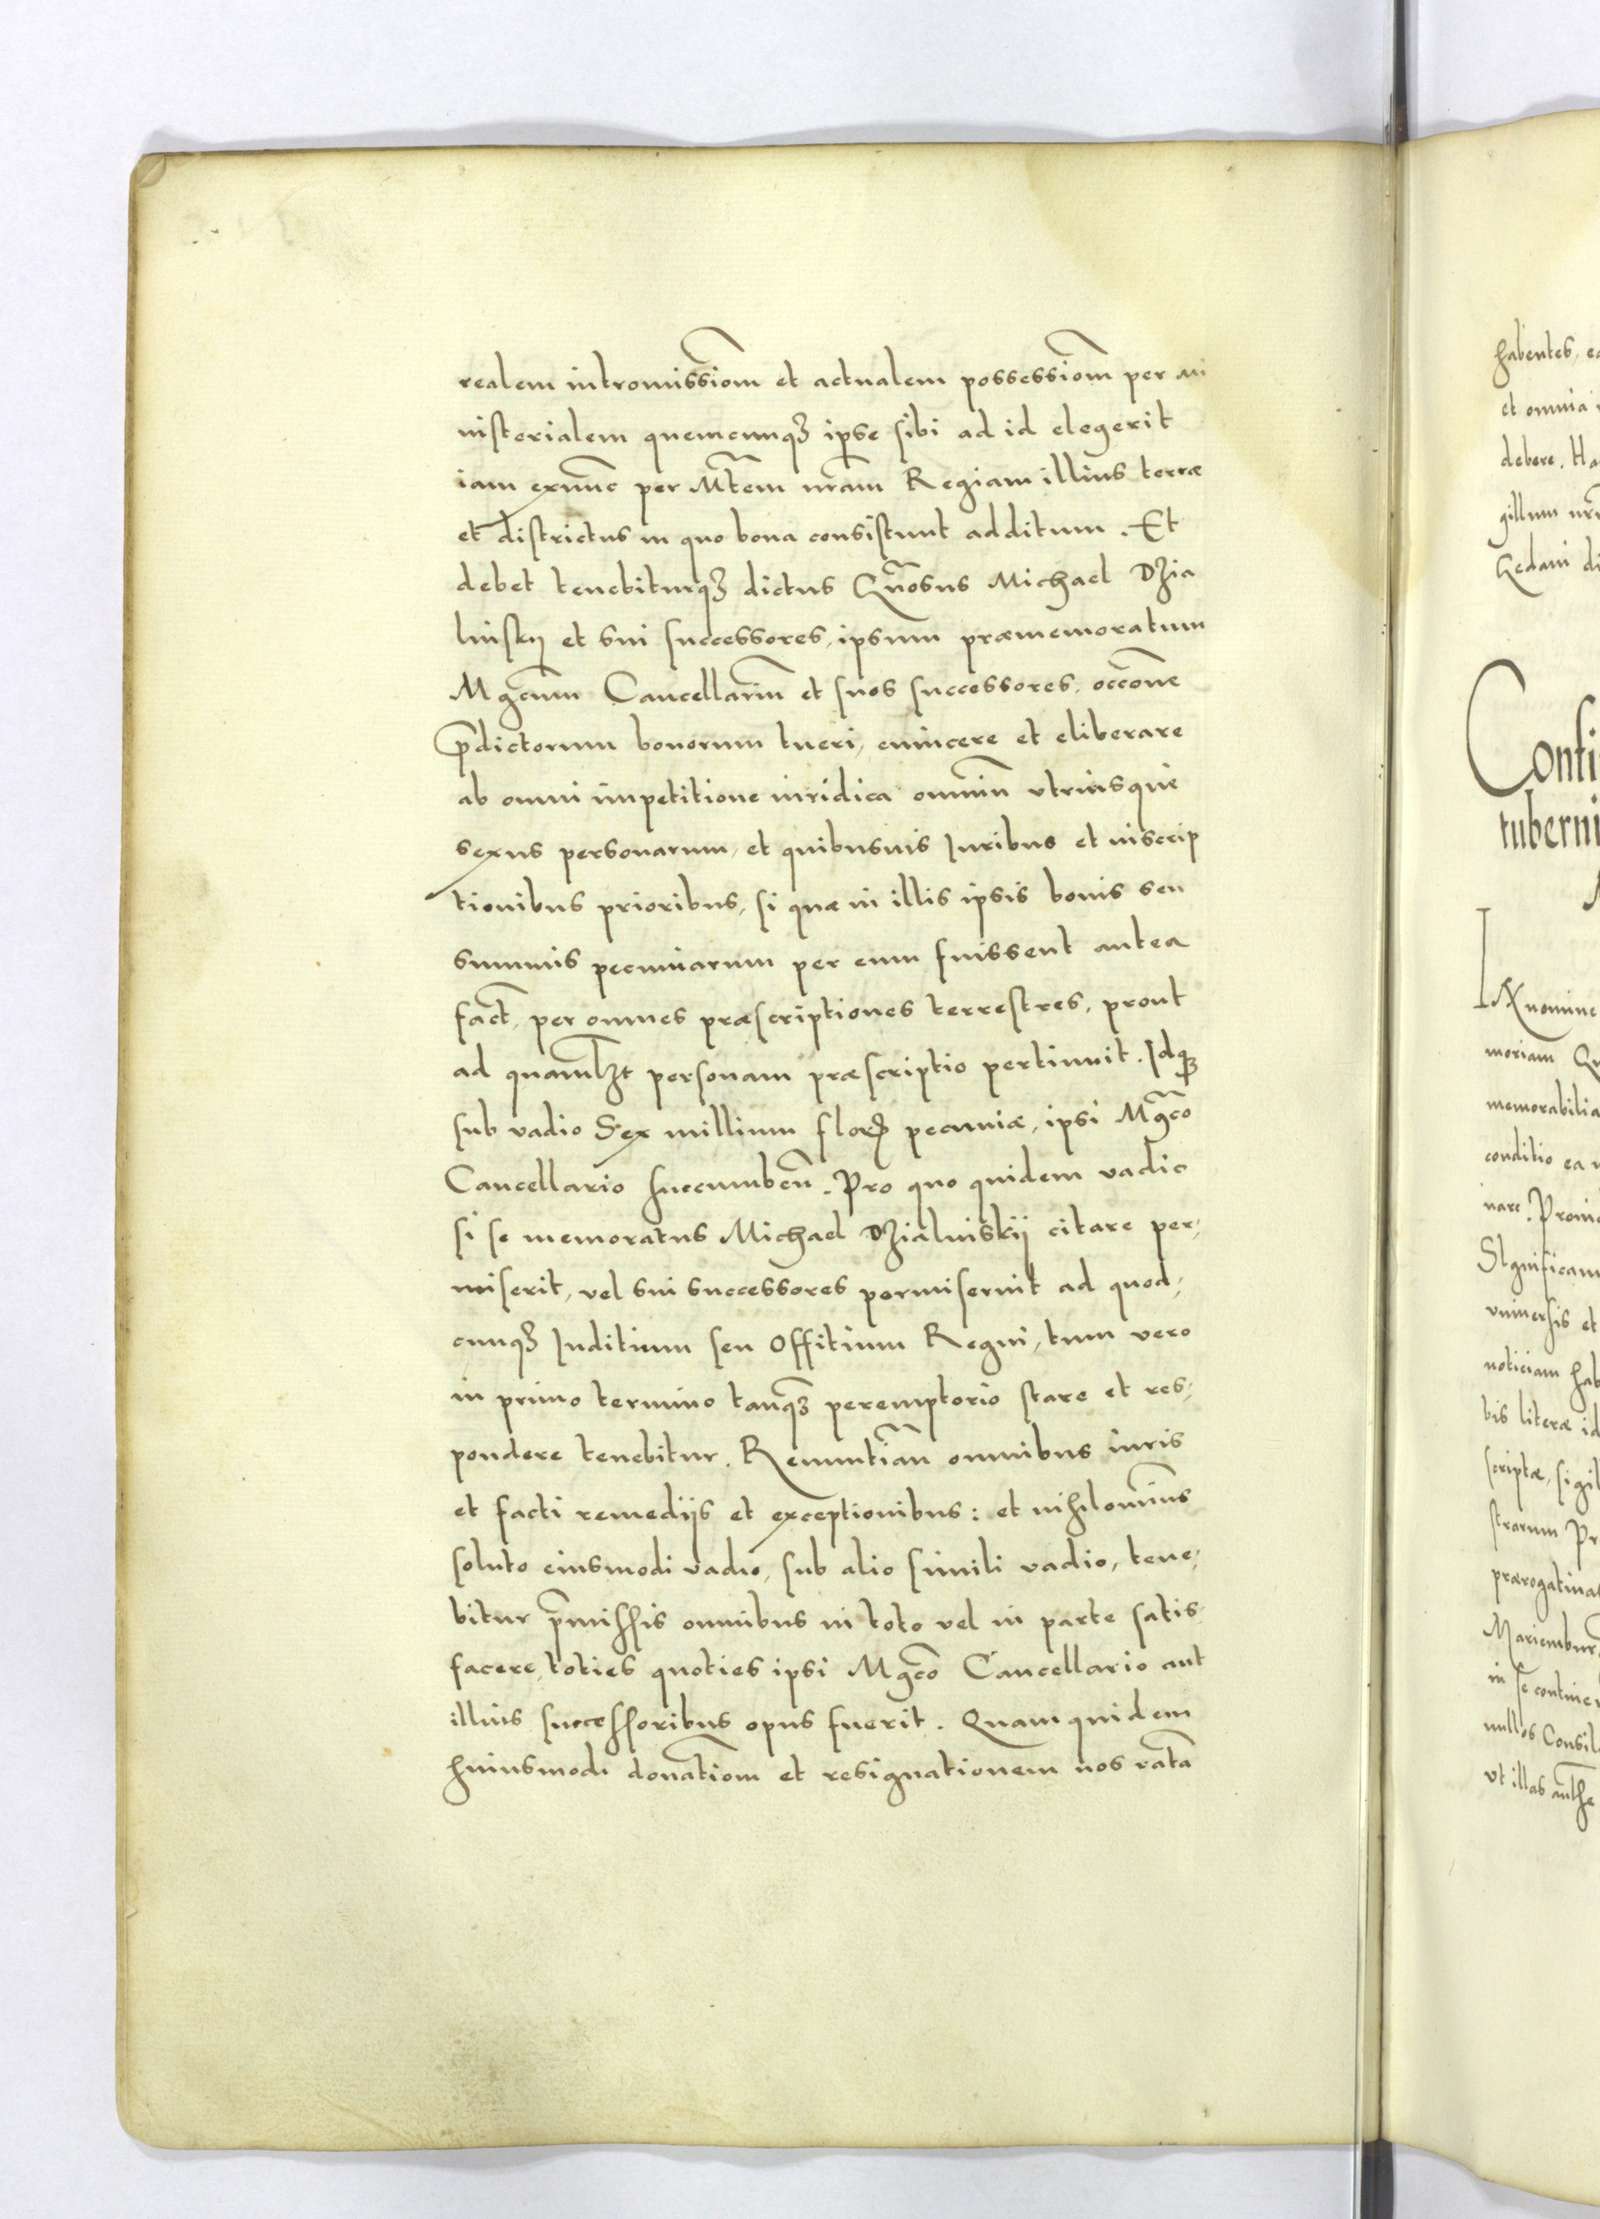 realem intromissiom̄ et actualem possessiom̄ per mi
nisterialem quemcunqȝ ipse sibi ad id elegerit
iam exnunc per Mtēm nrām Regiam illius terræ
et districtus in quo bona consistunt additum. Et
debet tenebiturqȝ dictus Gn̄osus Michael Dzia
linskij et sui successores, ipsum præmemoratum
Mgcūm Cancellariū et suos successores, occōne
p̄dictorum bonorum tueri, euincere et eliberare
ab omni impetitione iuridica omniū vtriusque
sexus personarum, et quibusuis Iuribus et inscrip
tionibus prioribus, si quæ in illis ipsis bonis seu
summis pecuniarum per eum fuissent antea
fact̄, per omnes præscriptiones terrestres, prout
ad quamlꝫt personam præscriptio pertinuit. Idqȝ
sub vadio Sex millium florꝝ pecuniæ, ipsi Mgcō
Cancellario succumben̄. Pro quo quidem vadio
si se memoratus Michael Dzialinskij citare per,
miserit, vel sui successores permiserint ad quod,
cunqȝ Inditium seu Offitium Regni, tum vero
in primo termino tanqȝ peremptorio stare et res,
pondere tenebitur. Renuntiān omnibus iuris
et facti remedijs et exceptionibus: et nihilominus
soluto eiusmodi vadio, sub alio simili vadio, tene,
bitur p̄missis omnibus in toto vel in parte satis
facere, toties quoties ipsi Mgcō Cancellario aut
illius successoribus opus fuerit. Quam quidem
huiusmodi donatiom̄ et resignationem nos ratā
habentes, ea
et omnia
debere. Ha
gillum nr̄m
Gedani di
Confi
tuberni
IN nomine
moriam Qu
memorabilia
conditio ea
nare. Proin
SIgnificam
vniuersis et
noticiam hab
bis literæ id
scriptæ, sigil
strarum Pr
prærogatiua
Marienbur
in se contine
nullos Consil
vt illas authe